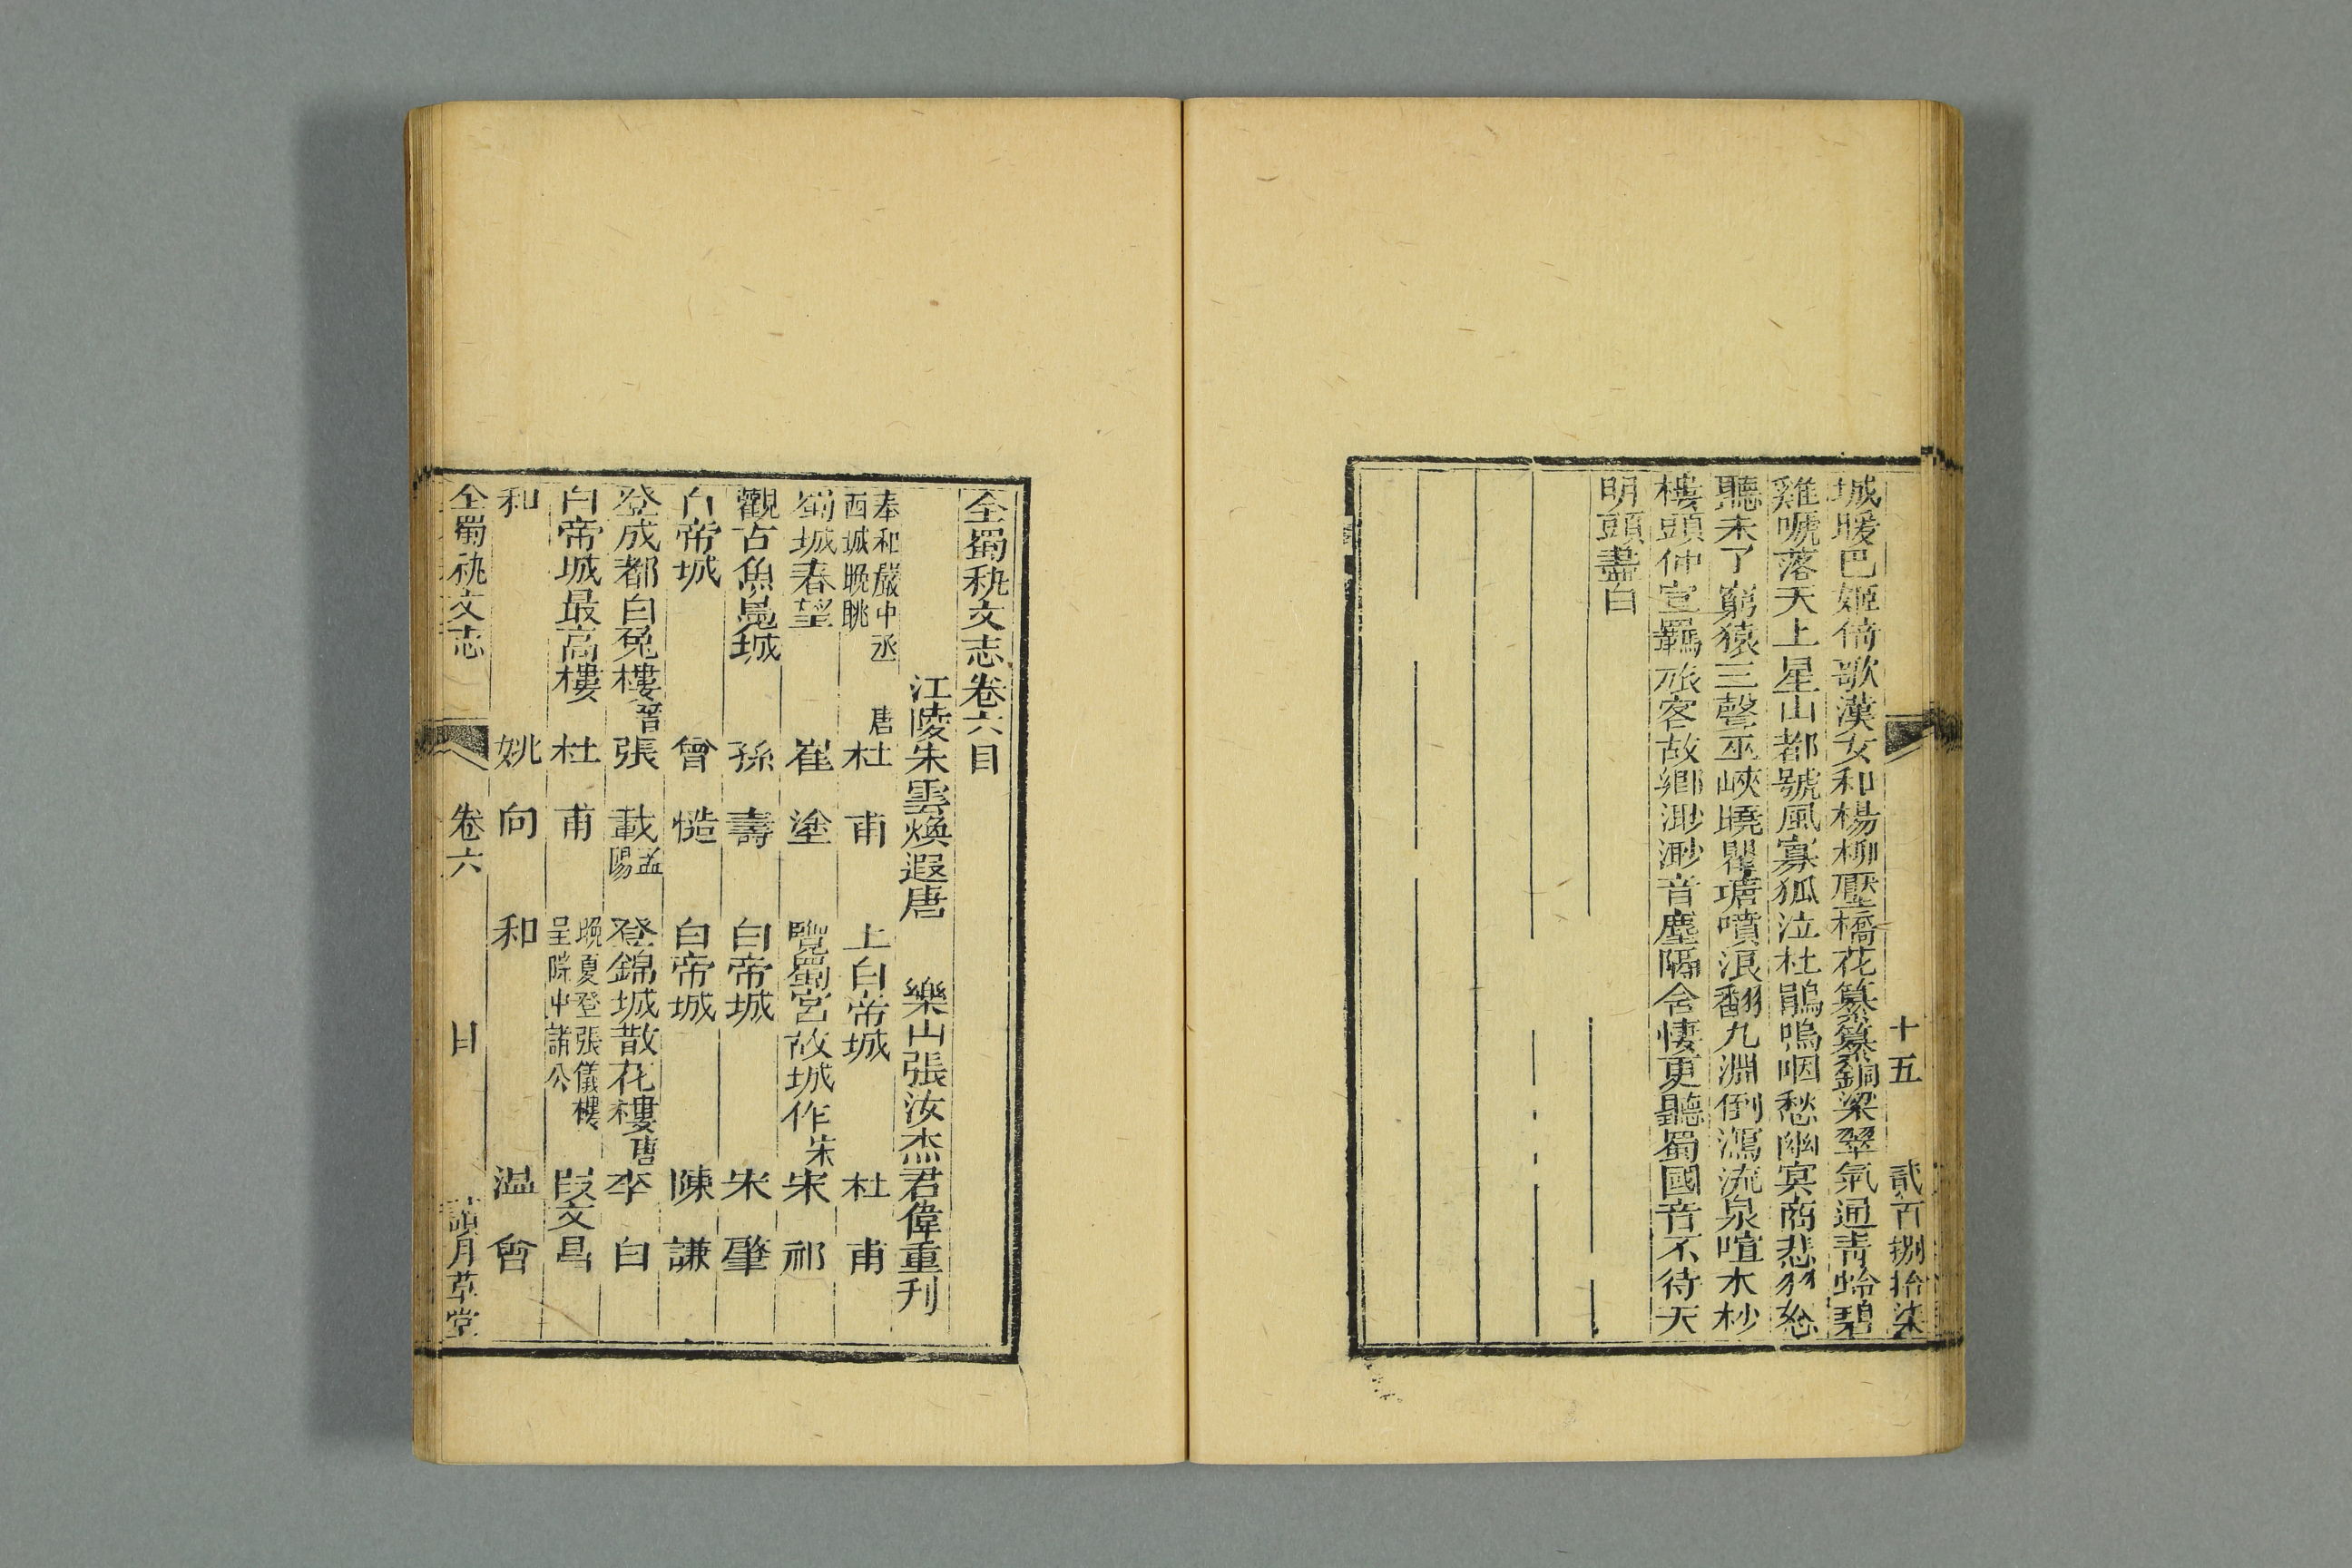 十五 貳百捌拾柒
城暖巴姬倚歌漢女和楊柳壓橋花篡篡銅梁翠氣通青蛉碧
雞嗁落天上星山都號風寡狐泣杜鵑嗚咽愁幽冥商悲羽怨
聽未了窮猿三聲巫峽曉瞿塘噴浪翻九淵倒瀉流泉喧木杪
樓頭仲宣羈旅客故鄉渺渺音塵隔含悽更聽蜀國音不待天
明頭盡白
全蜀秇文志卷六目
江陵朱雲煥遐唐 樂山張汝杰君偉重刊
奉和嚴中丞西城晚眺 唐杜甫 上白帝城 杜甫
蜀城春望 崔塗 豐蜀宮故城作 宋宋祁
觀古魚鳧城 孫壽 白帝城 宋肇
白帝城 曾慥 白帝城 陳謙
登成都白兔樓 晉張載孟陽 登錦城散花樓 唐李白
白帝城最高樓 杜甫 晚夏登張儀樓呈院中諸公 段文昌
和 姚向 和 温會
全蜀秇文志 卷六 目 讀月草堂